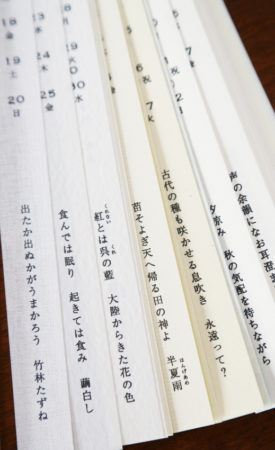 声の余韻になお耳澄
夕涼み 秋の気配を待ちながら
古代の種も咲かせる息吹き 永遠って?
苗そよぎ天へ帰る田の神よ 半夏雨
はんげあめ
紅とは呉の藍 大陸からきた花の色
くれない
くれ
食んでは眠り 起きては食み 繭白し
出たか出ぬかがうまかろう 竹林たずね
5
6
祝
7
火
水
30
水
24
木
25
金
18
金
19
土
20
日